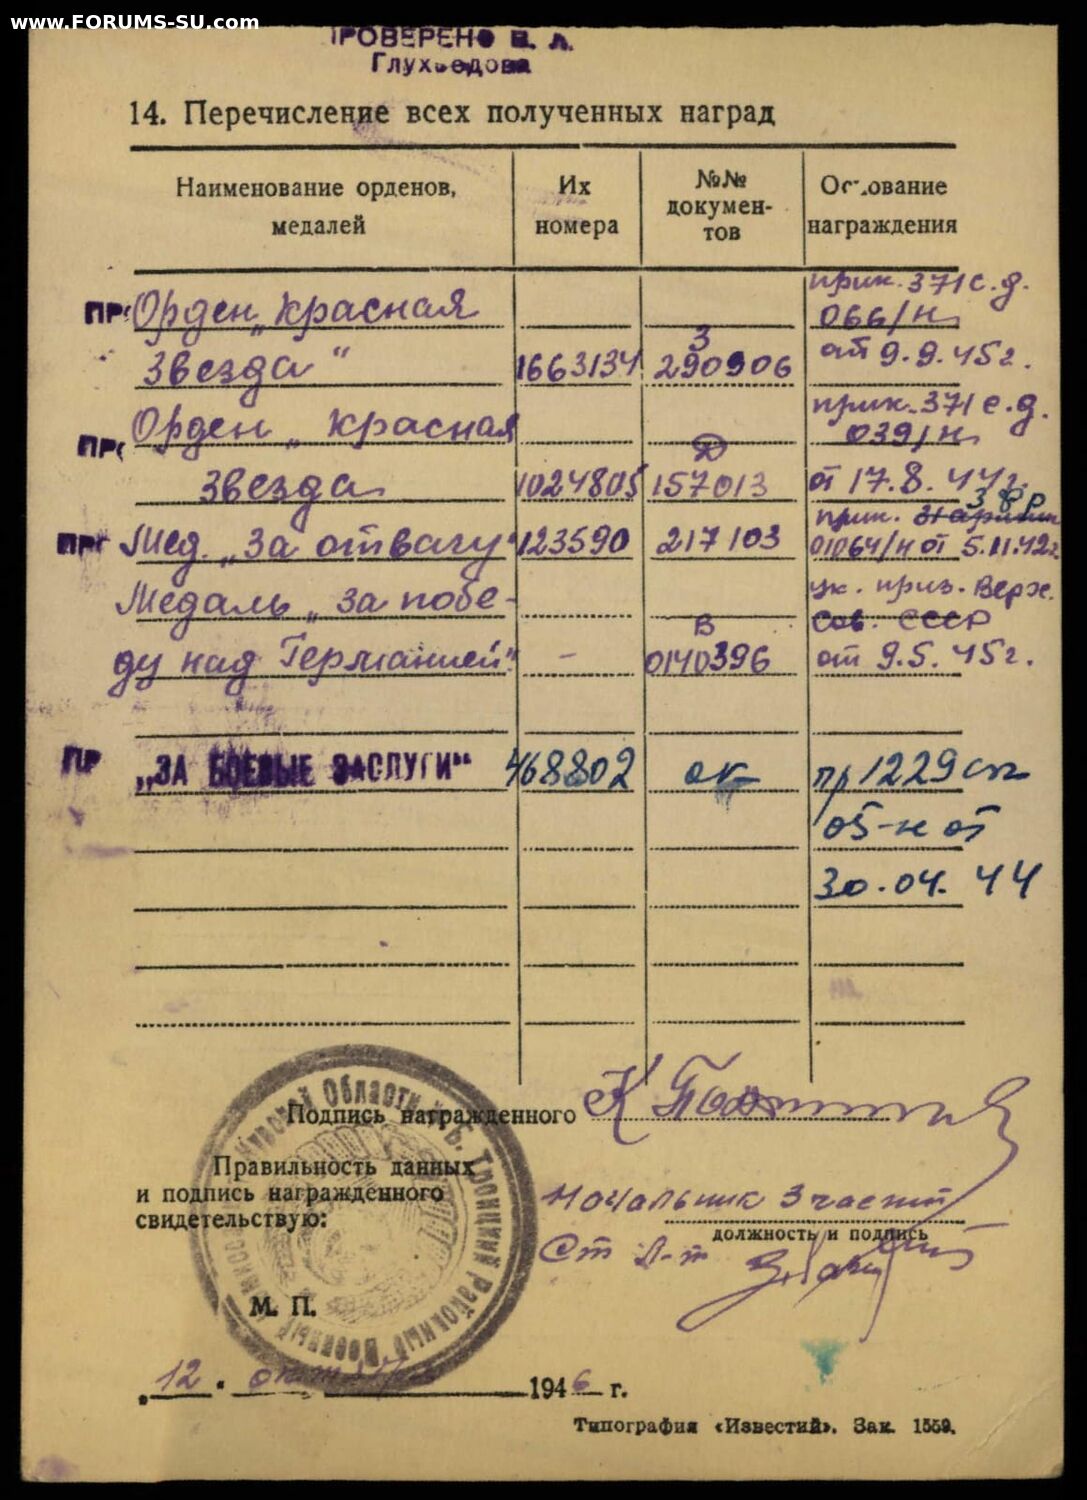 www.FORUMS-SU.com
ПРОВЕРЕНО В. Л.
Глухоедова
14. Перечисление всех полученных наград
Наименование орденов, медалей
Их номера
№№ документов
Основание награждения
Орден „Красная прик. 371 с.д.
066/н
З
Звезда“ 1663134 290906 от 9.9.45г.
Орден „Красная прик. 371 с.д.
039/н
Д
Звезда 1024805 157013 от 17.8.44г.
3 Ф
Мед. „За отвагу“ 123590 217103 прик.
01064/н от 5.11.42г.
Медаль „За побе- ук. през. Верх.
Сов. СССР
В
ду над Германией“ - 0140396 от 9.5.45г.
ПР „ЗА БОЕВЫЕ ЗАСЛУГИ“ 468802 ок пр 1229 сп
05-н от
30.04.44
Подпись награжденного
Правильность данных
и подпись награжденного
свидетельствую:
Начальник 3 части
должность и подпись
Ст л-т
М. П.
Области Троицкий Районный Военный
„12“ 1946 г.
Типография «Известий». Зак. 1559.